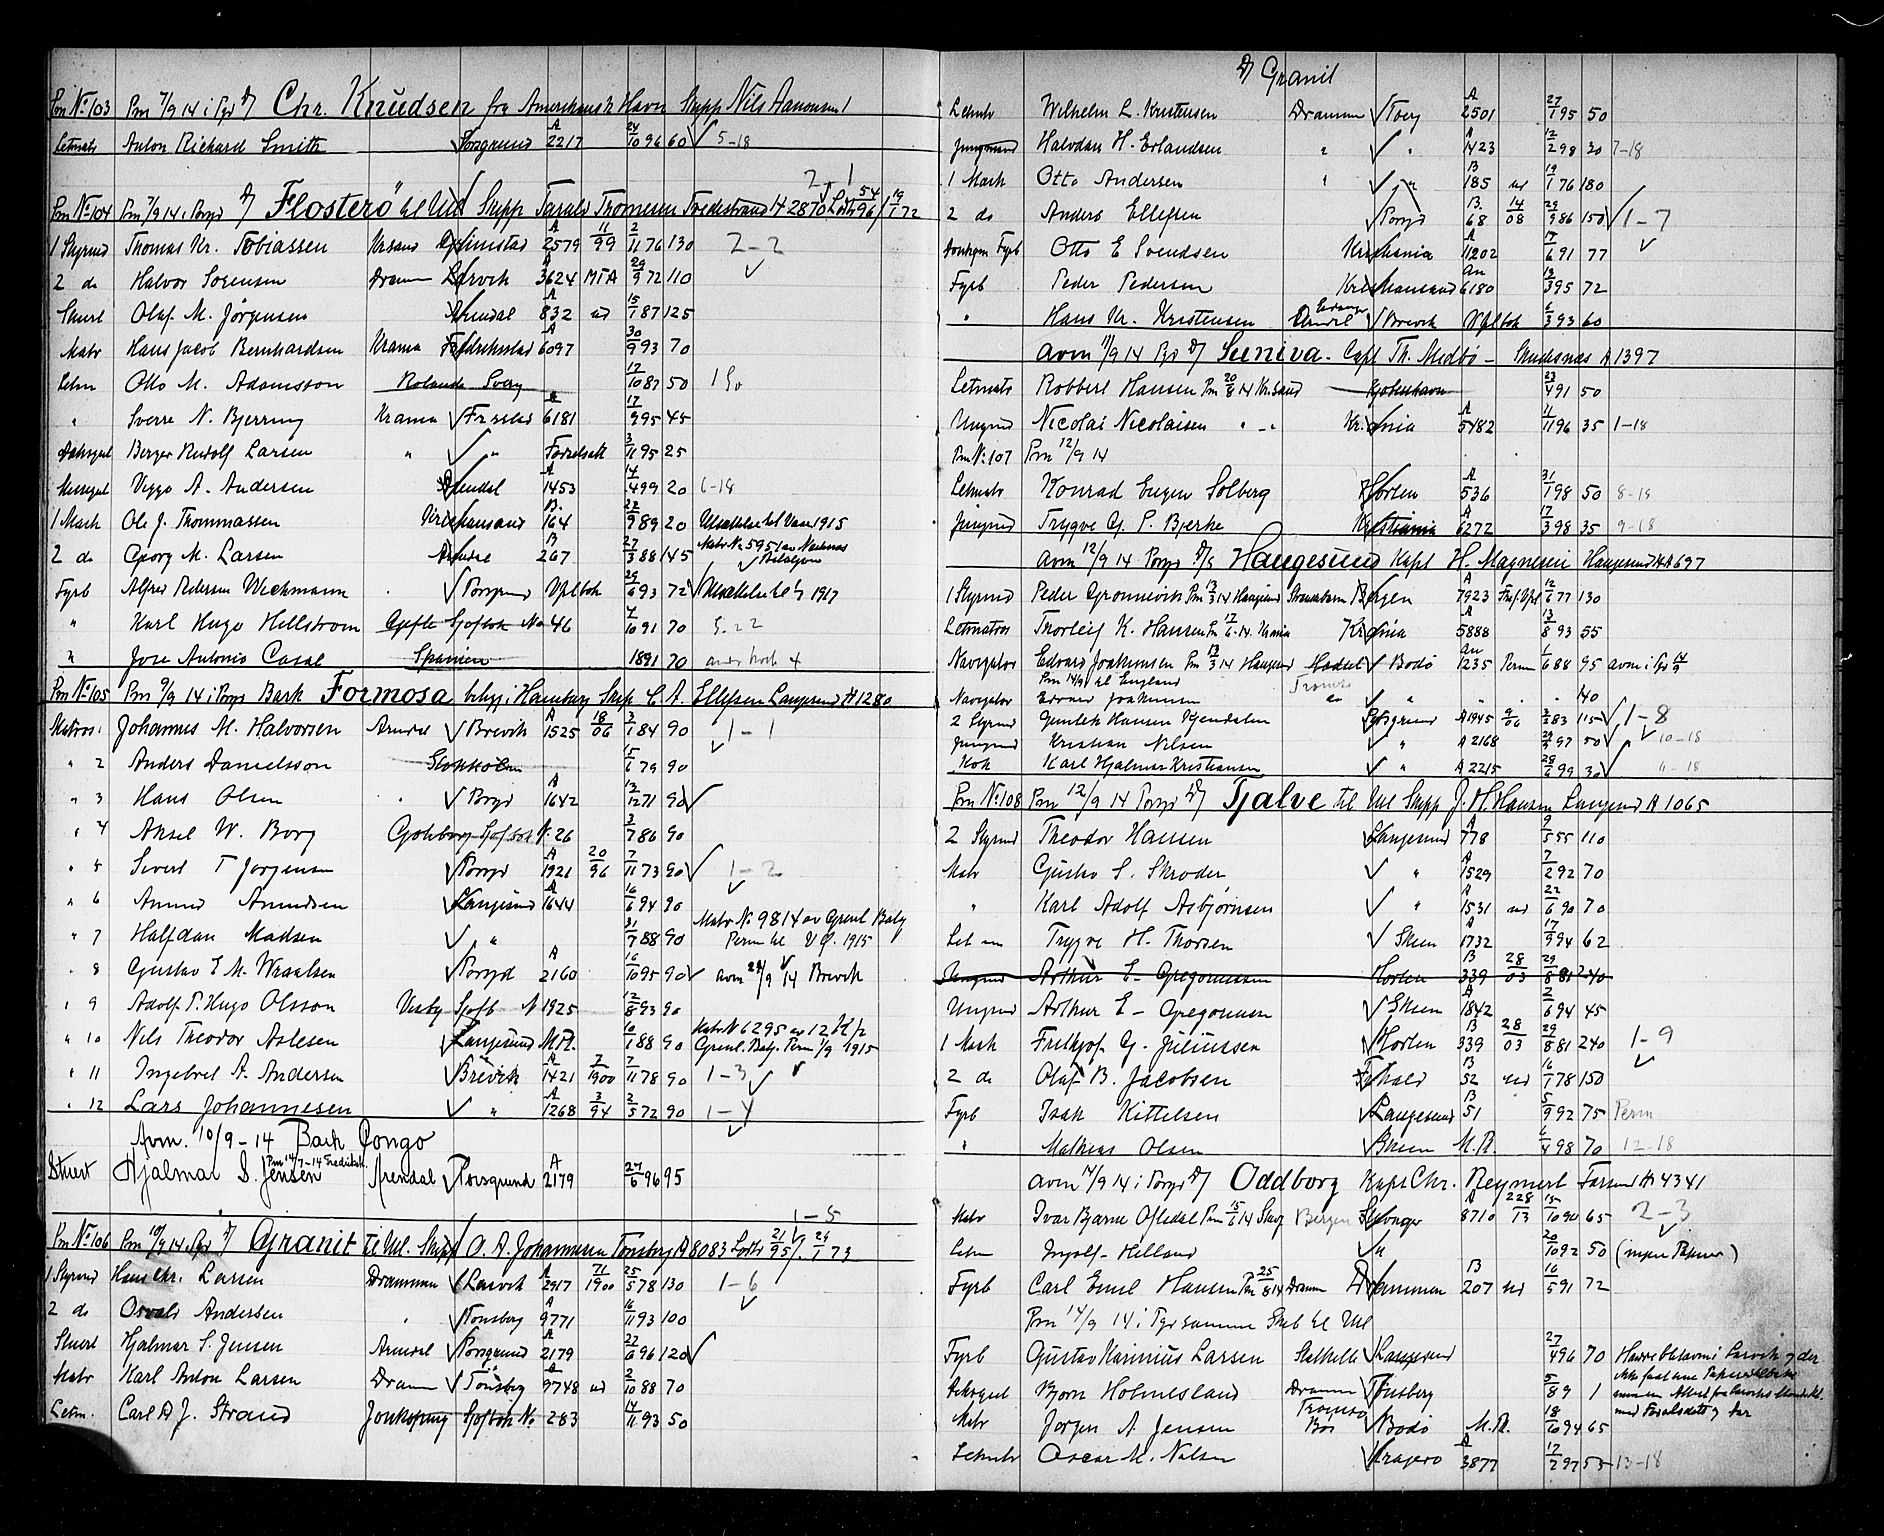 Pm No 103 Pm 7/9 14 i Pgd D/ Chr. Knudsen fra Amerikansk Havn Skipp Nils Aanonsen
Letmatr Anton Richard Smith Porsgrund A 2217 24/10 96 60 5-18
2-1
Pm No 104 Pm 7/9 14 i Porsgd D/ Flosterö til Utl Skipp Tarald Thomesen Tvedestrand A 2870 Lodtr 54/96 19/1 72
1 Styrmd Thomas Kr. Tobiassen Krsand Grimstad A 2579 11/99 2/11 76 130 2-2
2 do Halvor Sørensen Dramm Larvik A 3624 MTA 29/9 72 110
Stuert Olaf M. Jørgensen Arendal A 832 ud 15/7 87 125
Matr Hans Jacob Bernhardsen Krania Fredrikstad A 6097 30/9 93 70
Letm Otto M. Adamsson Rolanda Sverg 12/10 87 50
" Sverre N. Bjerring Krania Frstad A 6181 17/9 95 45
Dæksgut Berger Rudolf Larsen " " Fødselsatt 3/11 95 25
Messegut Viggo A. Andersen Arendal A 1453 14/4 99 20 6-18
1 Mask Ole J. Thommassen Kristiansand B. 164 22/9 89 20 Utsættelse til Vaar 1915
2 do Georg M. Larsen Arendal B 267 27/3 88 145 Matr No 5951 av Nedenes Bataljon
Fyrb Alfred Pedersen Wichmann Porsgrund Vplbok 29/6 93 72 Utsættelse til 1917
" Karl Hugo Hellstrøm Gefle Sjøfbok No 46 4/10 91 70 5-22
" Jose Antonio Casal Spanien 1891 70
Pm No 105 Pm 9/9 14 i Porsgd Bark Formosa Skip C. A. Ellefsen Langesund A 1280
Matros 1 Johannes M. Halvorsen Arendal Brevik A 1525 18/06 3/1 84 90 1-1
" 2 Anders Danielsson Stokkolm 15/6 79 90
" 3 Hans Olsen Porsgd A 1642 12/12 71 90
" 4 Aksel W. Borg Gøteborg Sjøfbok No 26 3/7 86 90
" 5 Sivert T Jørgensen Porsgd A 1921 20/96 7/11 73 90 1-2
" 6 Amund Amundsen Langesund A 1644 16/6 94 90
" 7 Halfdan Madsen " 31/7 88 90 Matr No 9814 av Grenl Batg Perm til 1915
" 8 Gustav E M. Waalsen Porsgd A 2160 16/10 95 90 avm 24/9 14 Brevik
" 9 Adolf P. Hugo Olsson Visby Sjøfb N 1925 12/8 93 90
" 10 Nils Theodor Aslesen Langesund M.R. 10/1 88 90 Matr N 6295 av 12 Kp Grenl. Batg. Perm 1/9 1915
" 11 Ingebret A. Andersen Brevik A 1421 7/1900 7/11 78 90 1-3
" 12 Lars Johannesen " A 1268 3/94 2/5 72 90 1-4
Avm. 10/9-14 Bark Congo
Stuert Hjalmar S. Jensen Pm 14/7-14 Fredrikst. Arendal Porsgrund A 2179 27/6 96 95
1-5
Pm No 106 Pm 10/9 14 Pgr D/ Granit til Utl. Skipp O. A. Johannesen Tønsberg A 8083 Lodtr 21/95 24/1 73
1 Styrmd Hans Chr. Larsen Drammen Larvik A 2917 71/1900 25/5 78 130 1-6
2 do Osvald Andersen " Tønsberg A 9771 16/11 93 100
Stuert Hjalmar S. Jensen Arendal Porsgrund A 2179 27/6 96 120
Matr Karl Anton Larsen Dramm Tønsberg A 9748 ud 2/10 88 70
Letm. Carl A J. Strand Jonkøping Sjøfbok No 283 14/11 93 50
D/ Granit
Letmatr Wilhelm L. Kristensen Drammen Tberg A 2501 27/1 95 50
Jungmand Halvdan H. Erlandsen " " A 1423 12/2 98 30 7-18
1 Mask Otto Andersen " " B 185 ud 19/1 76 180
2 do Anders Ellefsen Porsgd B. 68 14/08 29/9 86 150 1-7
Donkym Fyrb Otto E Svendsen Kristiania A 11202 17/6 91 77
Fyrb Peder Pedersen Kristiansand an 6180 13/3 95 72
" Hans Kr. Kristensen Brevik Vplbok 6/3 93 60
Avm 11/9 14 Pgr D/ Suniva. Capt Th. Midbø - Skudesnæs A 1397
Letmatr Robbert Hansen Pm 20/8 14 Kr.sand Kjøbenhavn 23/4 91 50
Ungmd Nicolai Nicolaisen " - " Kr.ania A 5482 11/11 96 35 1-18
Pm No 107 Pm 12/9 14
Letmatr Konrad Eugen Solberg Horten A 536 31/1 98 50 8-18
Jungmd Trygve G. P. Bjerke Kristiania A 6272 17/3 98 35 9-18
Avm 12/9 14 Porsgd D/S Haugesund Kapt H. Magnesen Haugesund A 697
1 Styrmd Peder Grønnevik Pm 13/3 14 Haugesund Bergen A 7923 12/6 77 130
Letmatros Thorleif K. Hansen Pm 12/6-14 Krania Kr.ania A 5888 13/8 93 55
Navigatør Edvard Joakimsen Pm 13/3 14 Haugesund Bodø an 1235 Perm 1/6 88 95 avm i Pgr 14/9
Pm 14/9 til England Tromsø
Navigatør Edvard Joakimsen do " " " 140
2 Styrmd Gunlek Hansen Gjendalen Porsgrund A 1945 9/06 3/2 83 115 1-8
Jungmd Kristian Nilsen " A 2168 29/5 97 50 10-18
Kok Karl Hjalmar Kristiansen " A 2215 28/6 99 30 11-18
Pm No 108 Pm 12/9 14 Porsgd D/ Tjalve til Utl Skipp J. H. Hansen Langesund A 1065
2 Styrmd Theodor Hansen Langesund A 778 9/5 55 110
Matr Gustav S. Skrøder " A 1529 7/2 92 70
" Karl Adolf Asbjørnsen " A 1531 ud 22/6 90 70
Letm Trygve H. Thorsen Skien A 1732 17/9 94 62
Ungmd Arthur E. Gregoriusen Horten B 339 28/03 29/8 81 240
Ungmd Arthur E. Gregoriusen Skien A 1842 2/6 94 45
1 Mask Fritkjof G. Juliussen Horten B 339 28/03 29/8 81 240 1-9
2 do Olaf B. Jacobsen Frhald B 52 ud 16/1 78 150
Fyrb Isak Kittelsen Langesund B 51 5/9 92 75 Perm
" Mathias Olsen Skien M.R. 6/4 98 70 12-18
Avm 14/9 14 i Porsgd D/ Oddborg Kapt Chr. Reymert Farsund A 4341
Matr Ivar Bjarne Ofledal Pm 15/6 14 Stavg Bergen Stavanger A 8710 228/13 15/10 90 65 2-3
Letm Ingolf Helland " 20/10 92 50 (ingen Papirer)
Fyrb Carl Emil Hansen Pm 25/8 14 Dramm Drammen B 207 ud 16/5 91 72
Pm 14/9 14 i Pgr samme Skib til Utl
Fyrb Gustav Marinius Larsen Stathelle Langesund 27/4 96 70
Dæksgut Bjørn Holmesland Dramm Tønsberg 5/8 9 1
Matr Jørgen A. Jensen Tromsø Bodø M.R. 18/6 94 65
Letmatr Oscar M. Nilsen Kragerø A 3877 17/2 97 55 13-18